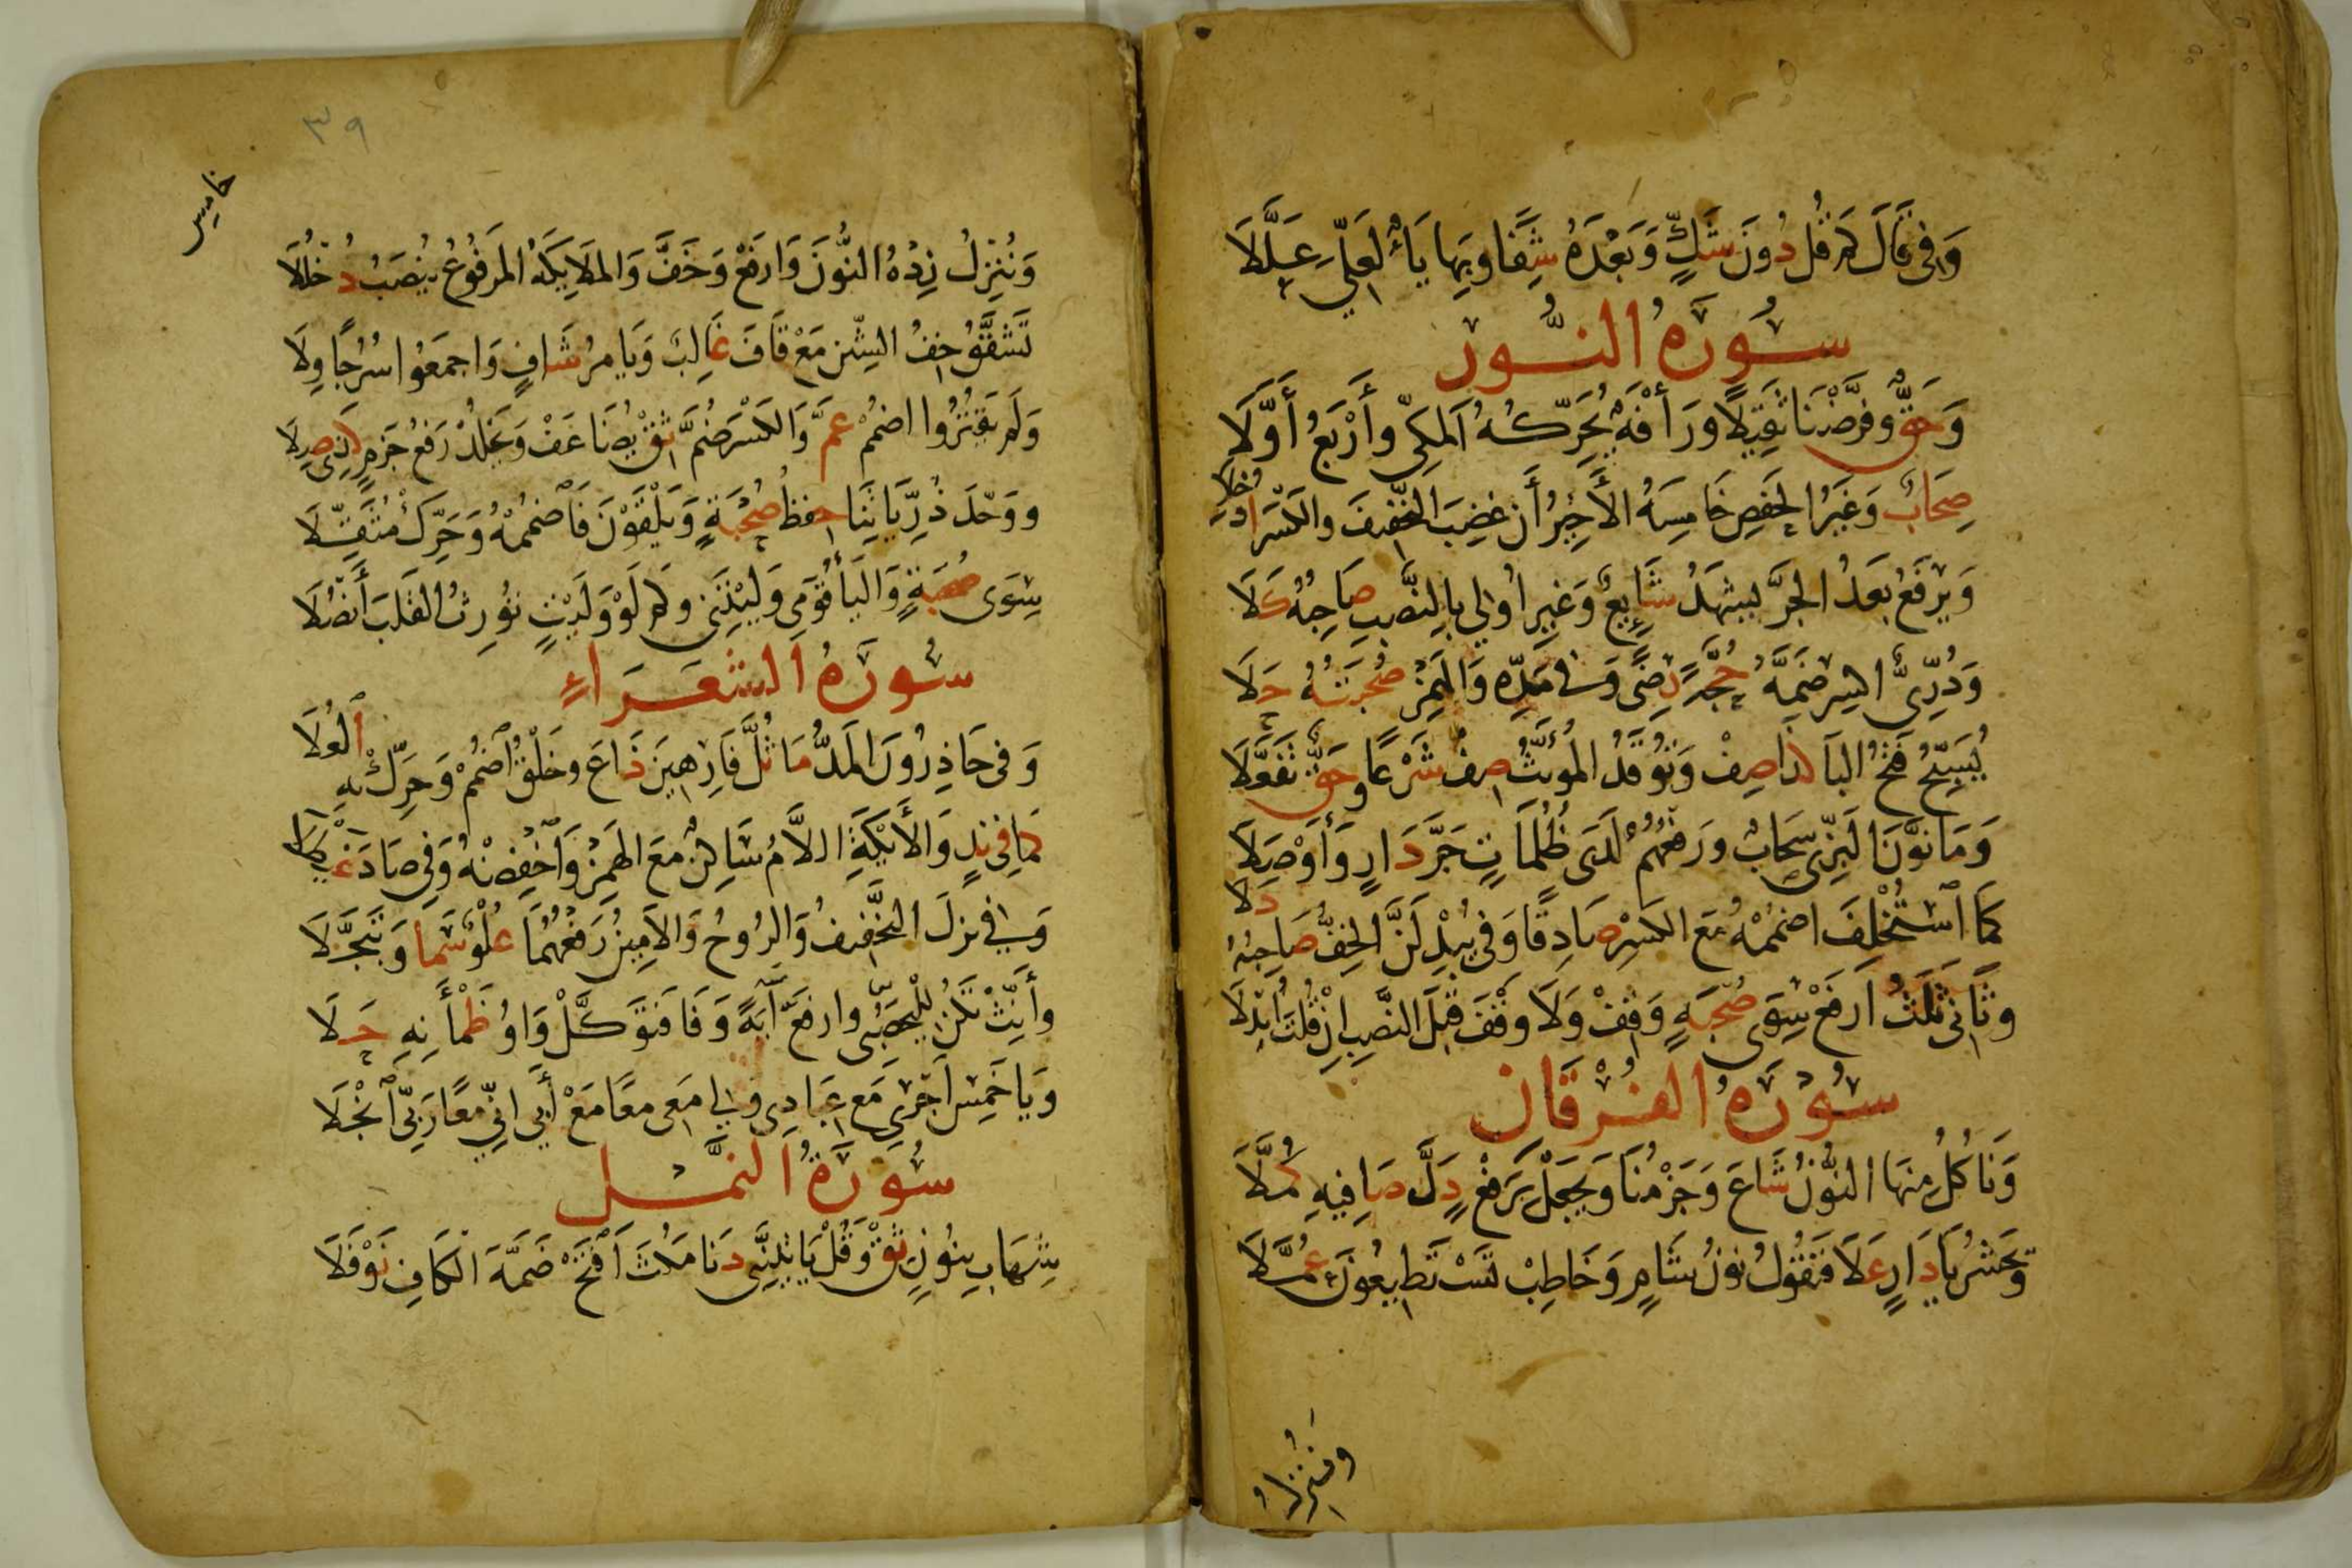 وَفِي قَالَ كَمْ قُل دُونَ شَكٍّ وَبَعْدَهُ شَفَا وَبِهَا يَاءٌ لَعَلِّي عُلِّلَا
سُورَةُ النُّورِ
وَحَقٌّ وَفَرَّضْنَا ثَقِيلًا وَرَأْفَةٌ يُحَرِّكُهُ المَكِّي وَأَرْبَعُ أَوَّلَا
صِحَابٌ وَغَيْرُ الحَفْصِ خَامِسَةُ الأَخِيرُ أَن غَضِبَ التَّخْفِيفَ وَالكَسْرَ ادْخِلَا
وَيَرْفَعُ بَعْدُ الجَرَّ يَشْهَدُ شَايِعٌ وَغَيْرِ أُولِي بِالنَّصْبِ صَاحِبُهُ كَلَا
وَدُرِّيٌّ اكْسِرْ ضَمَّهُ حُجَّةً رِضًى وَفِي مَدِّهِ وَالهَمْزِ صُحْبَتُهُ حَلَا
يُسَبِّحُ فَتْحُ البَا كَذَا صِفْ وَتُوقَدُ المُؤَنَّثُ صِفْ شَرْعًا وَحَقٌّ تَفَعَّلَا
وَمَا نَوَّنَ البَزِّي سَحَابٌ وَرَفْعُهُمْ لَدَى ظُلُمَاتٍ جَرَّ دَارٍ وَأَوْصَلَا
كَمَا اسْتُخْلِفَ اضْمُمْهُ مَعَ الكَسْرِ صَادِقًا وَفِي يُبْدِلَنَّ الخِفُّ صَاحِبُهُ دَلَا
وَثَانِي ثَلَثُ ارْفَعْ سِوَى صُحْبَةٍ وَقِفْ وَلَا وَقْفَ قَبْلَ النَّصْبِ إِنْ قُلْتَ أُبْدِلَا
سُورَةُ الفُرْقَانِ
وَنَاكُلُ مِنْهَا النُّونُ شَاعَ وَجَزْمُنَا وَيَجْعَلْ بِرَفْعٍ دَلَّ صَافِيهِ كُمَّلَا
وَيَحْشُرُ يَا دَارٍ عَلَا فَنَقُولُ نُونُ شَامٍ وَخَاطِبْ تَسْتَطِيعُونَ عُمَّلَا
وَنُنْزِلُ
٣٩
خامس
وَنُنْزِلُ زِدْهُ النُّونَ وَارْفَعْ وَخَفَّ وَالمَلَايِكَةُ المَرْفُوعُ يُنْصَبُ دُخْلُلَا
تَشَقَّقُ خِفُّ الشِّينِ مَعْ قَافَ غَالِبٌ وَيَامُرُ شَافٍ وَاجْمَعُوا سُرُجًا وِلَا
وَلَمْ يَقْتُرُوا اضْمُمْ عَمَّ وَالكَسْرَ ضُمَّ ثِقْ يُضَاعَفْ وَيَخْلُدْ رَفْعُ جَزْمٍ كَذِي صِلَا
وَوَحَّدَ ذُرِّيَّاتِنَا حِفْظُ صُحْبَةٍ وَيَلْقَوْنَ فَاضْمُمْهُ وَحَرِّكْ مُثَقِّلَا
سِوَى صُحْبَةٍ وَاليَاءُ قَوْمِي وَلَيْتَنِي وَكَمْ لَوْ وَلَيْتٍ تُورِثُ القَلْبَ أَنْصُلَا
سُورَةُ الشُّعَرَاءِ
وَفِي حَاذِرُونَ المَدُّ مَا ثُلَّ فَارِهِينَ ذَاعَ وَخَلْقُ اضْمُمْ وَحَرِّكْ بِهِ العُلَا
كَمَا فِي نَدٍ وَالأَيْكَةِ اللَّامُ سَاكِنٌ مَعَ الهَمْزِ وَاخْفِضْهُ وَفِي صَادَ غَيْطَلَا
وَفِي نَزَلَ التَّخْفِيفُ وَالرُّوحُ وَالأَمِينُ رَفْعُهُمَا عُلْوٌ سَمَا وَتَبَجَّلَا
وَأَنِّثْ تَكُنْ لِلْيَحْصُبِي وَارْفَعْ آيَةً وَفَا فَتَوَكَّلْ وَاوُ ظَمْآنِهِ حَلَا
وَيَا خَمْسِ أَجْرِي مَعْ عِبَادِي وَلِي مَعِي مَعًا مَعْ أَبِي إِنِّي مَعًا رَبِّي انْجَلَا
سُورَةُ النَّمْلِ
شِهَابٍ بِنُونٍ ثِقْ وَقُلْ يَاتِيَنَّنِي دَنَا مَكُثَ افْتَحْ ضَمَّةَ الكَافِ نَوْفَلَا